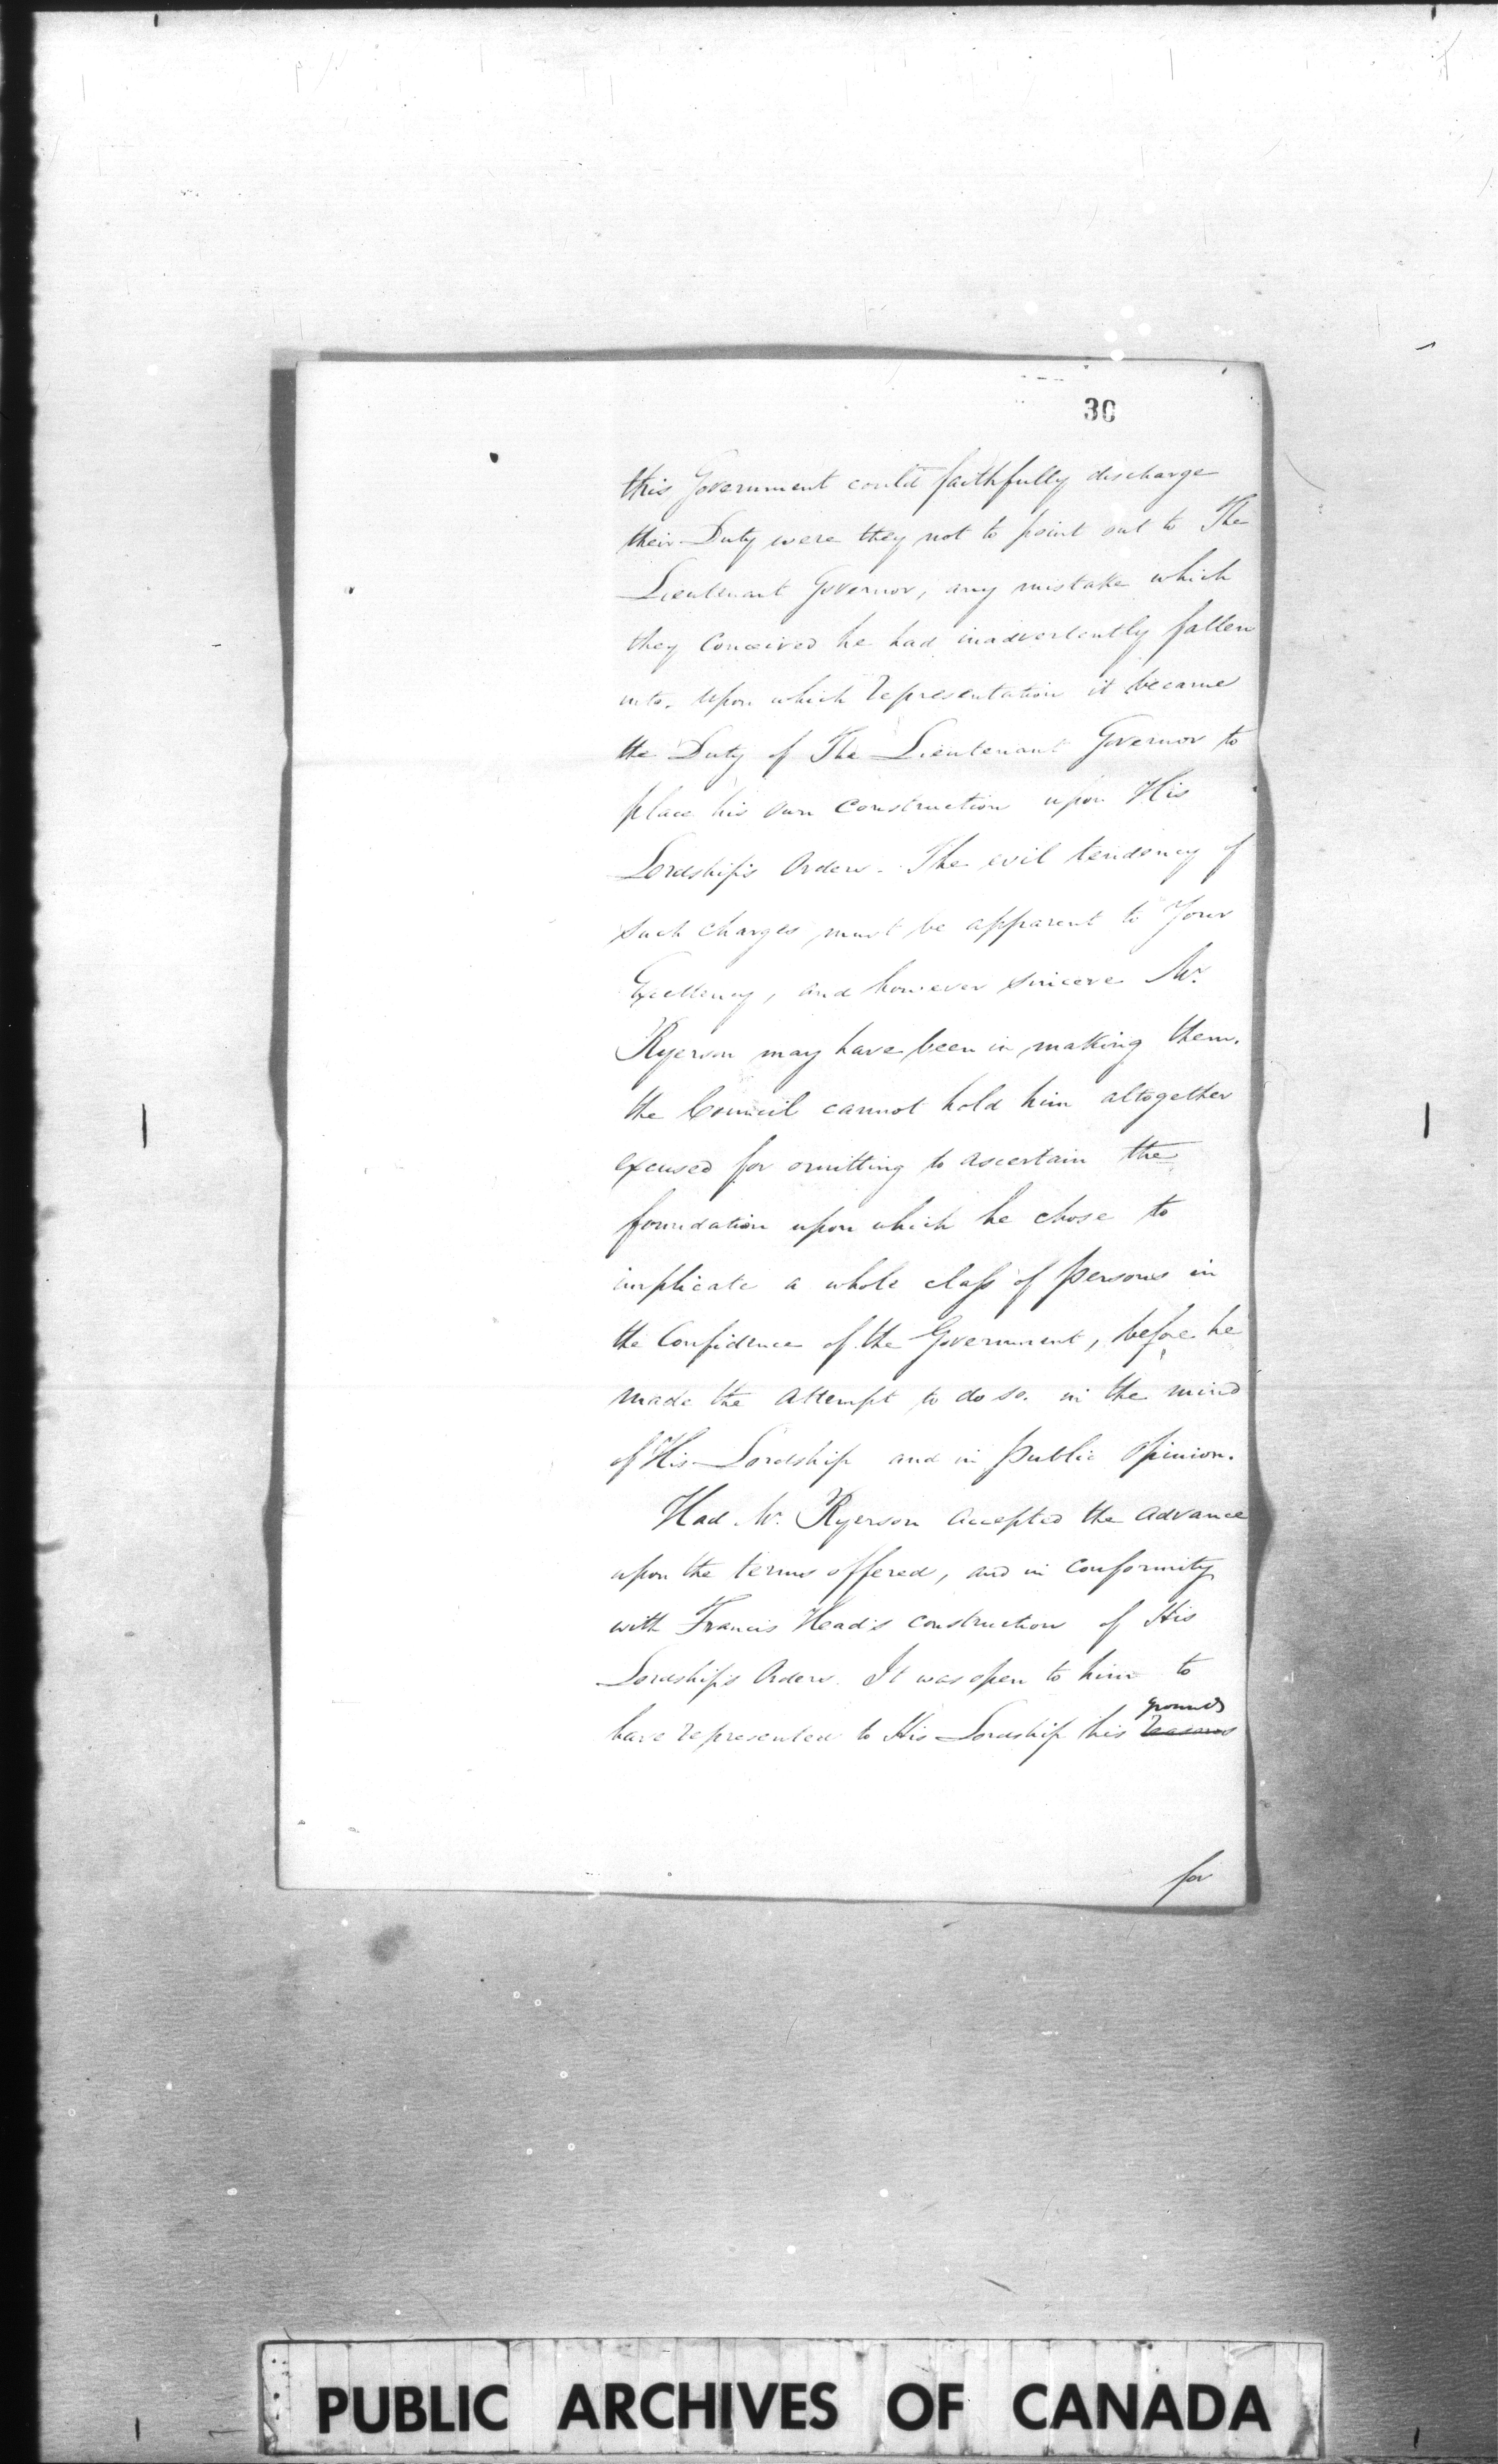 30
this Government could faithfully discharge
their Duty were they not to point out to The
Lieutenant Governor, any mistake which
they Conceived he had inadvertently fallen
into. Upon which representation it became
the Duty of The Lieutenant Governor to
place his own Construction upon His
Lordship's Orders. The evil tendency of
such charges must be apparent to Your
Excellency, and however sincere Mr.
Ryerson may have been in making them.
the Council cannot hold him altogether
excused for omitting to ascertain the
foundation upon which he chose to
implicate a whole class of persons in
the Confidence of the Government, before he
made the attempt to do so. in the mind
of His Lordship and in public opinion.
Had Mr. Ryerson accepted the advance
upon the terms offered, and in conformity
with Francis Head's construction of His
Lordship's Orders. It was open to him to
grounds
have represented to His Lordship his reasons
for
PUBLIC ARCHIVES OF CANADA